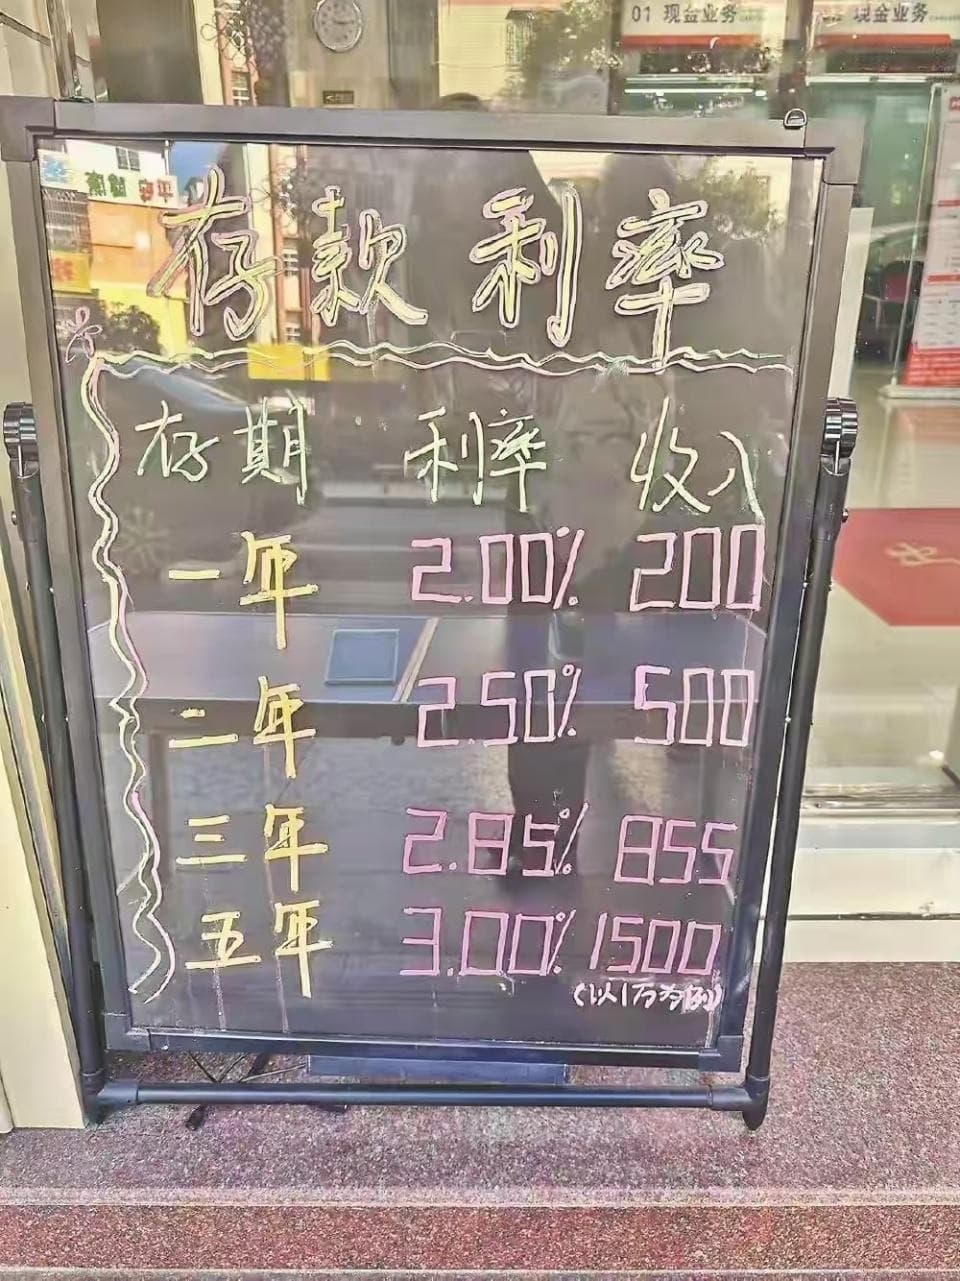 01 现金业务
现金业务
存款利率
存期 利率 收入
一年 2.00% 200
二年 2.50% 500
三年 2.85% 855
五年 3.00% 1500
(以1万为例)